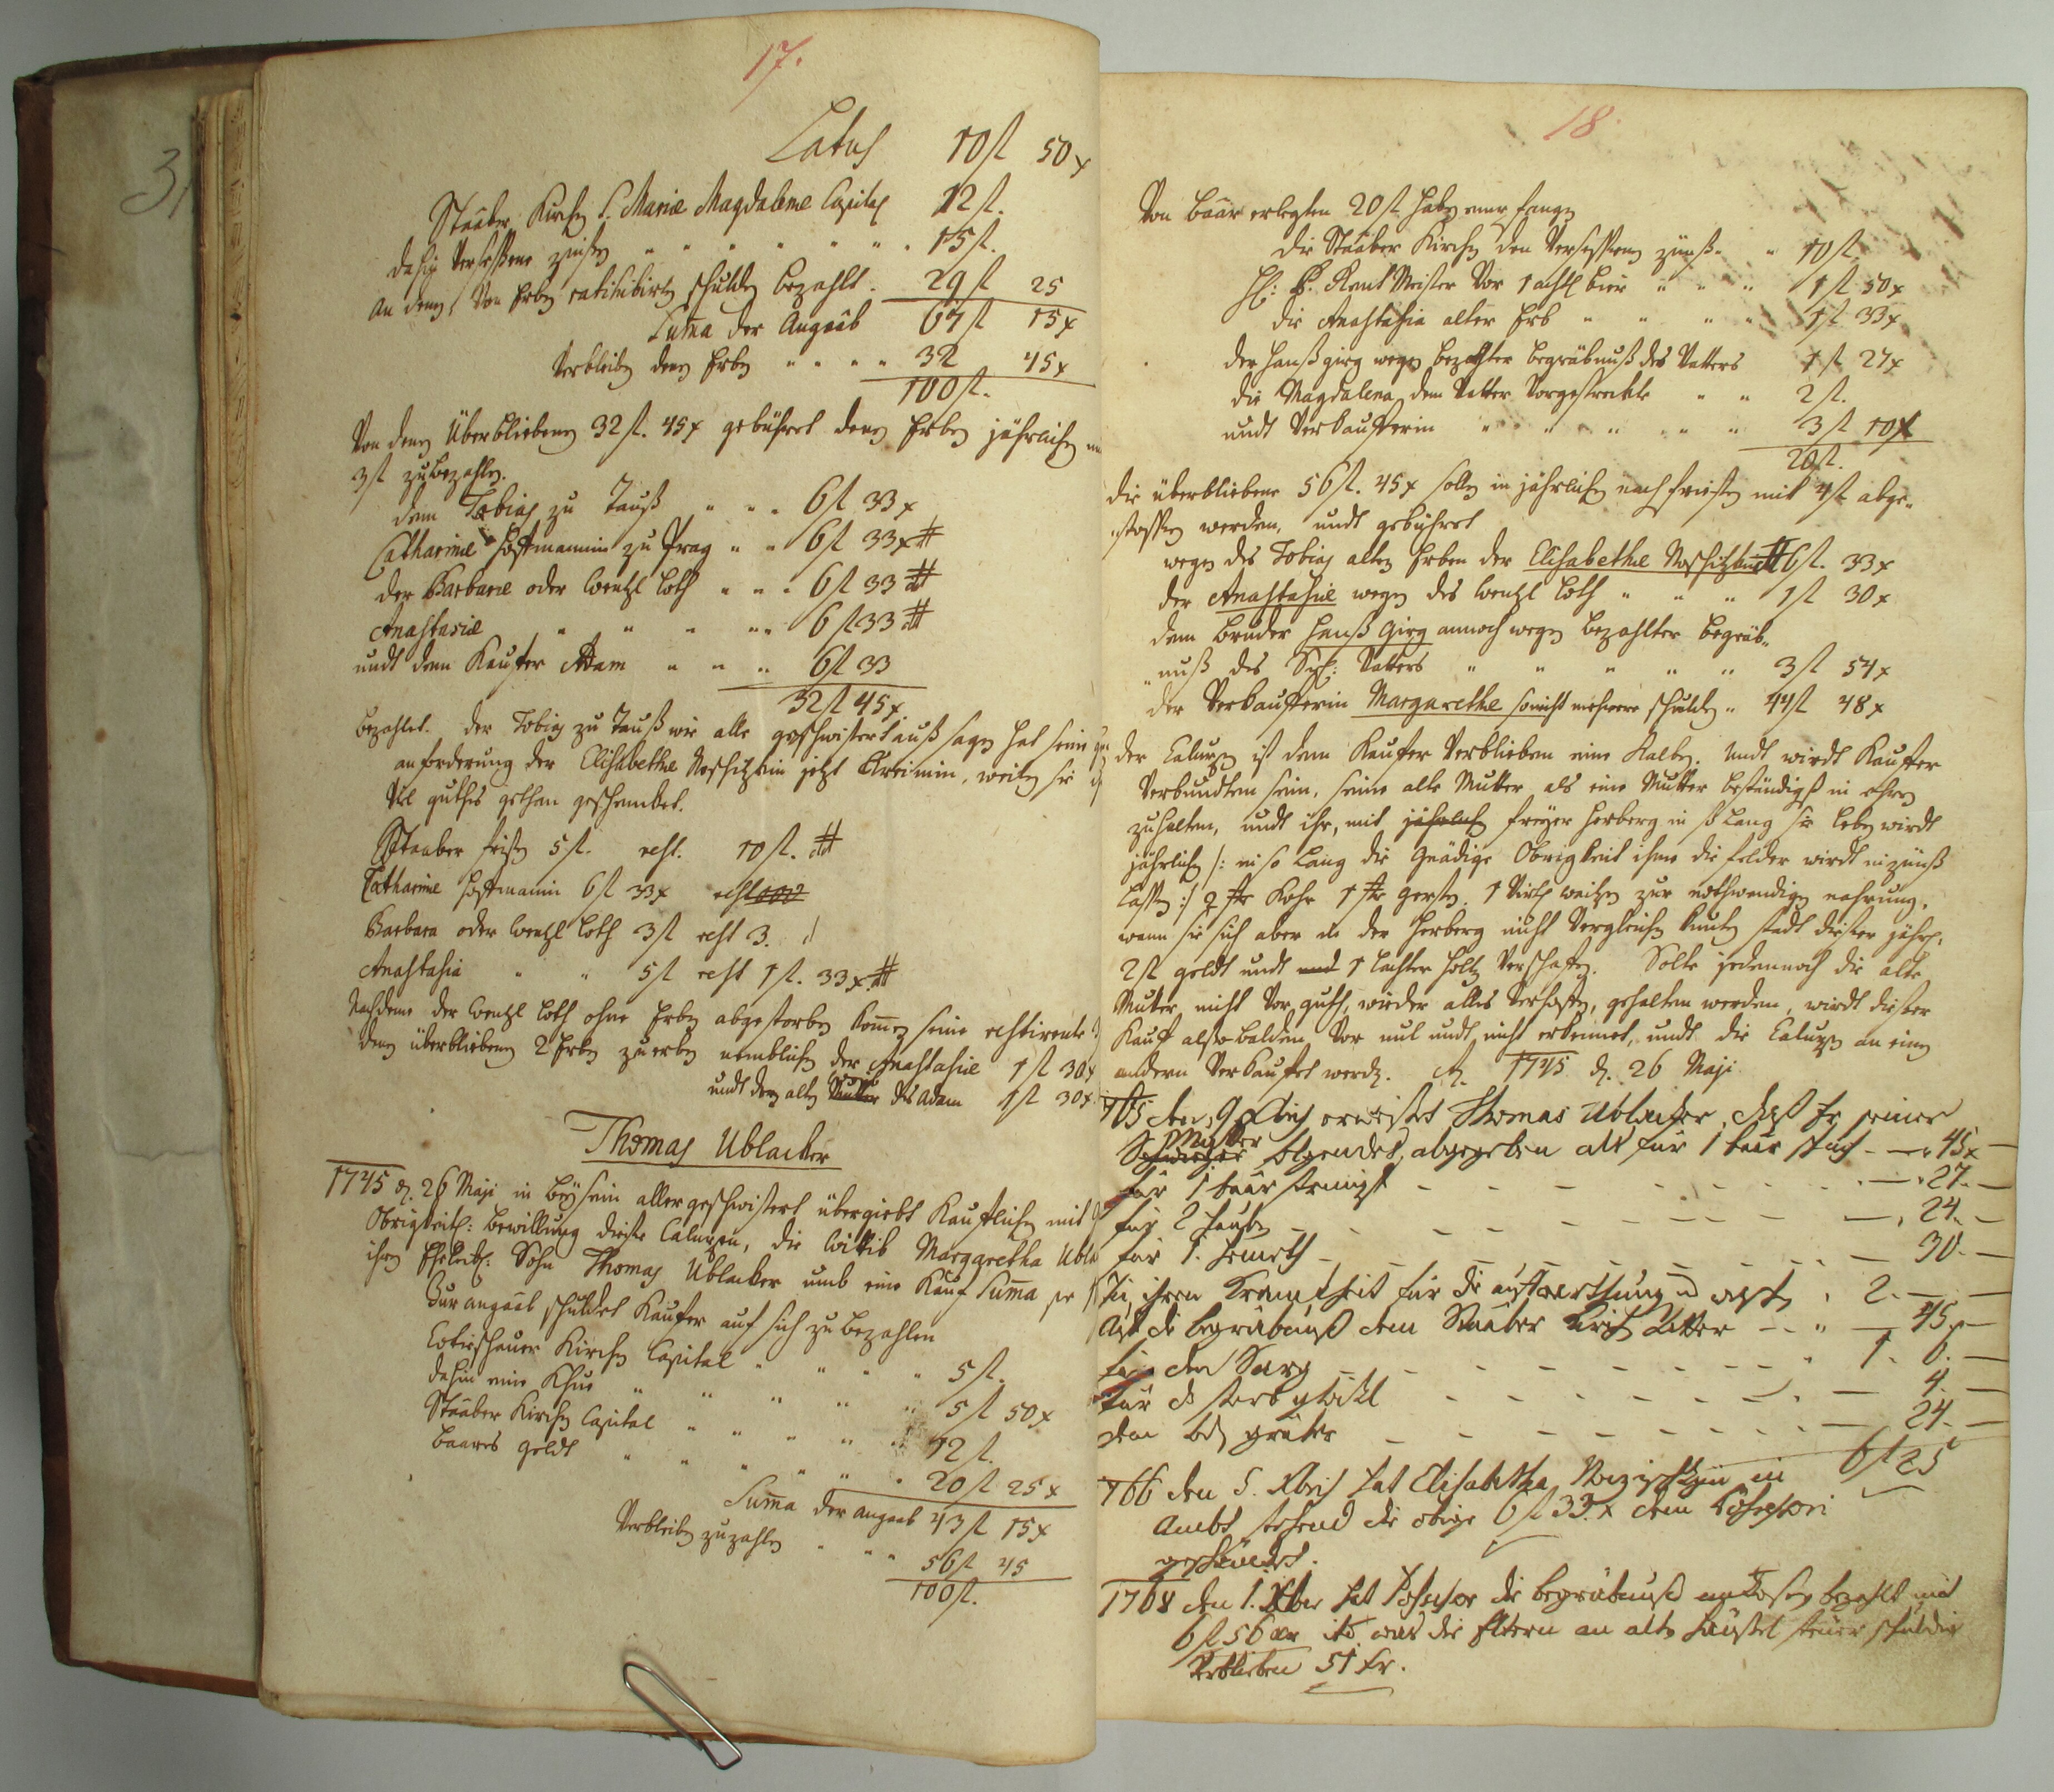 17.
Latus 10 fl 50 x
Staaber Kirchen S. Mariæ Magdalenæ Capital 12 fl.
dahin Versessene zinsen " " " " " " 15 fl.
An denen, Von Erben ratificirten schulden bezahlt. 29 fl 25
Suma der Angaab 67 fl 15 x
Verbleiben denen Erben " " " " 32 45 x
100 fl.
Von denen Überbliebenen 32 fl. 45 x gebühret denen Erben jährlichen
3 fl zu bezahlen.
dem Tobias zu Tauß " " " 6 fl 33 x
Catharinæ Hoffmannin zu Prag " " 6 fl 33 x #
der Barbaræ oder Wentzl Loth " " " 6 fl 33 #
Anastasiæ " " " " " 6 fl 33 #
undt dem Kaufer Adam " " " 6 fl 33
32 fl 45 x
bezahlet. der Tobias zu Tauß wie alle geschwistert außsagen hat seine
anforderung der Elisabethæ jetzt weilen sie
Viel guthes gethan geschenket.
Staaber fristen 5 fl. rest. 10 fl. #
Catharinæ Hoffmannin 6 fl 33 x rest
Barbara oder Wentzl Loth 3 fl rest 3.
Anastasia " " 5 fl rest 1 fl. 33 x #
Nachdeme der Wentzl Loth ohne Erben abgestorben komen seine restirente
denen überbliebenen 2 Erben zu erben nemblichen der Anastasiæ 1 fl 30 x
undt den alten Mutter des Adam 1 fl 30 x.
Thomas Ublacker
1745 d. 26 Maji in beysein aller geschwistert übergiebt Kauflichen mit
Obrigkeitl: bewilligung dieße Caluppen, die Wittib Margaretha Ubla
ihren Eheleibl: Sohn Thomas Ublacker umb eine Kauf Suma per
Zur angaab schuldet Kaufer auf sich zu bezahlen
Kirchen Capital " " " " 5 fl.
dahin eine Khue " " " " " 5 fl 50 x
Staaber Kirchen Capital " " " " " 12 fl.
baares geldt " " " " " " 20 fl 25 x
Suma der angaab 43 fl 15 x
Verbleiben zuzahlen " " " 56 fl 45
100 fl.
18
Von baar erlegten 20 fl haben empfangen
die Staaber Kirchen den Versessenen zünß " " 10 fl
H: Rent Meister Vor 1 achtl bier " " " 1 fl 50 x
die Anastasia alter Erb " " " " 1 fl 33 x
der Hanß Girg wegen bezahlter begräbnuß des Vatters 1 fl 27 x
die Magdalena dem Vatter Vorgestreckte " " 2 fl.
undt Verkaufferin " " " " " 3 fl 10 x
20 fl.
die überbliebene 56 fl. 45 x sollen in jährlichen nachfristen mit 4 fl abge-
stossen werden, undt gebühret
wegen des Tobias alten Erben der Elisabethæ # 6 fl. 33 x
der Anastasiæ wegen des Wentzl Loth " " " 1 fl 30 x
dem bruder Hanß Girg annoch wegen bezahlter begräb-
nuß des Seel: Vatters " " " " " 3 fl 54 x
der Verkaufferin Margarethæ schulden " 44 fl 48 x
der Caluppen ist dem Kauffer Verblieben eine Kalben. Undt wirdt Kauffer
Verbundten sein, seine alte Mutter als eine Mutter beständigst in ehren
zuhalten, undt ihr, mit jährlich freyer Herberg in so lang sie leben wirdt
jährlichen /: in so lang die Gnädige Obrigkeit ihme die felder wirdt in zünß
lassen :/ 2 Korn 1 Gersten. 1 Virtl weitzen zur nothwendigen nahrung,
wann sie sich aber in der Herberg nicht Vergleichen kunten stadt dießer jährl:
2 fl geldt undt und 1 lachter holtz Verschaffen. Solte jedennoch die alte
Mutter nicht Vor guth, wieder alles Verhoffen, gehalten werden, wirdt dießer
Kauf alßobalden Vor nul undt nicht erkennet, undt die Caluppen an einen
andern Verkauffet werden. A. 1745 d. 26 Maji
765 den 9 erweiset Thomas Ublacker, daß Er seiner
Schwieger Mutter folgendes, abgegeben als für 1 baar schuh - " 45 x
für 1 baar strimpf - - - - - " 27. -
für 2 hauben - - - - - - " 24. -
für 1. Hemeth - - - - - - 30. -
In ihren Krankheit für die aufwarthung 2. -
die begräbnuß dem Staaber - " 45 x
für den Sarg - - - - - 1. 6. -
für - - - - - 4. -
dem - - - - - - 24. -
6 fl 25
766 den 5. hat Elisabetha in
Ambt stehend die obige 6 fl 33. x dem Possessori
geschänket.
1768 den 1. hat Possessor die begräbnuß unkosten bezahlt mit
6 fl 56 xr was die Eltern an alten schuldig
Verblieben 51 xr.